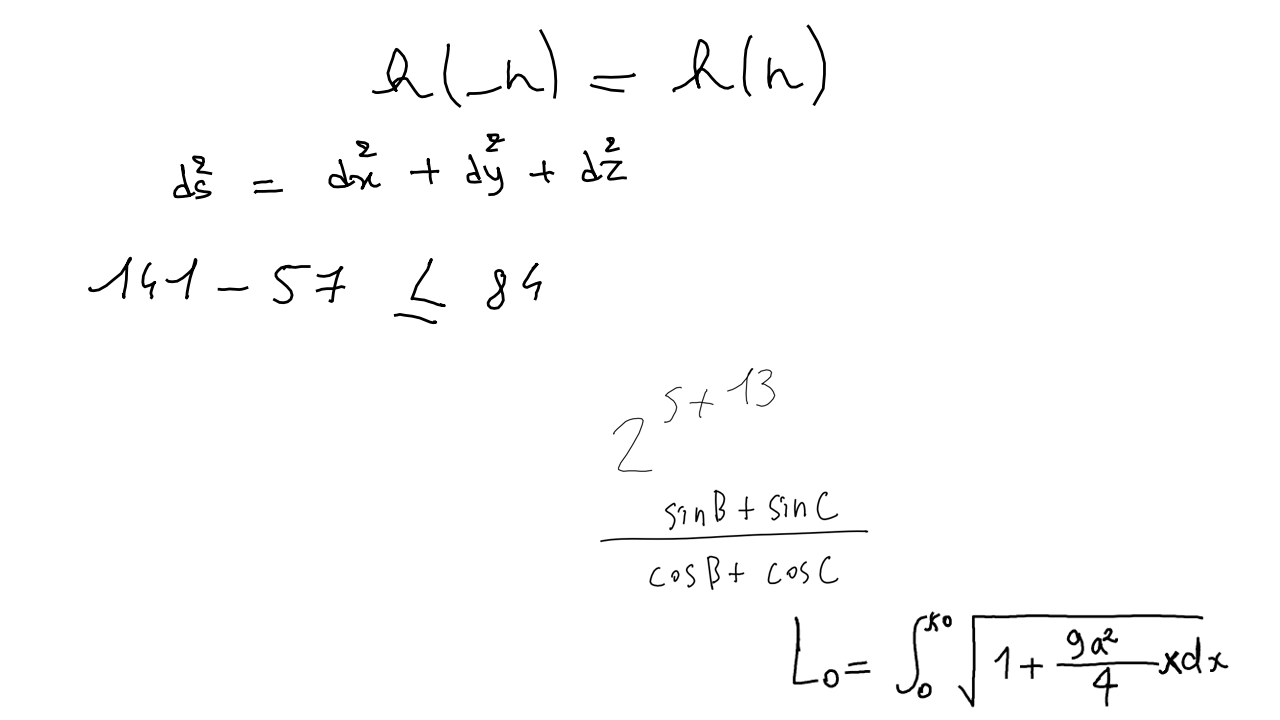 h(-n) = h(n)
ds² = dx² + dy² + dz²
141 - 57 ≤ 84
2^{5+13}
\frac{sinB + sinC}{cosB + cosC}
L_0 = \int_0^{x_0} \sqrt{1 + \frac{9a^2}{4} x} dx